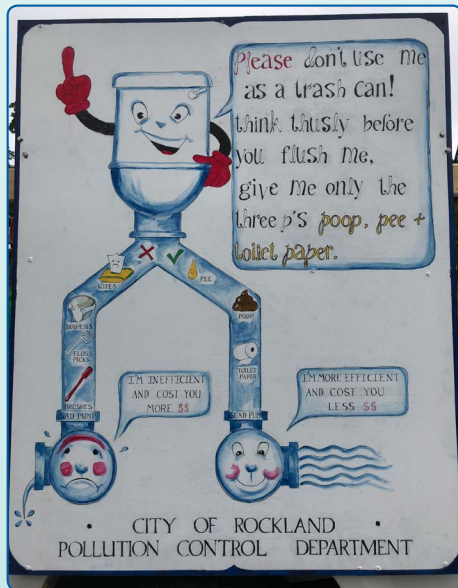 Please don't use me
as a trash can!
think thusly before
you flush me,
give me only the
three p's poop, pee +
toilet paper.
WIPES
PEE
DIAPERS
POOP
FLOSS
PICKS
TOILET
PAPER
BRUSHES
SAD PUMP
I'M INEFFICIENT
AND COST YOU
MORE $$
I'M MORE EFFICIENT
AND COST YOU
LESS $$
• CITY OF ROCKLAND •
POLLUTION CONTROL DEPARTMENT